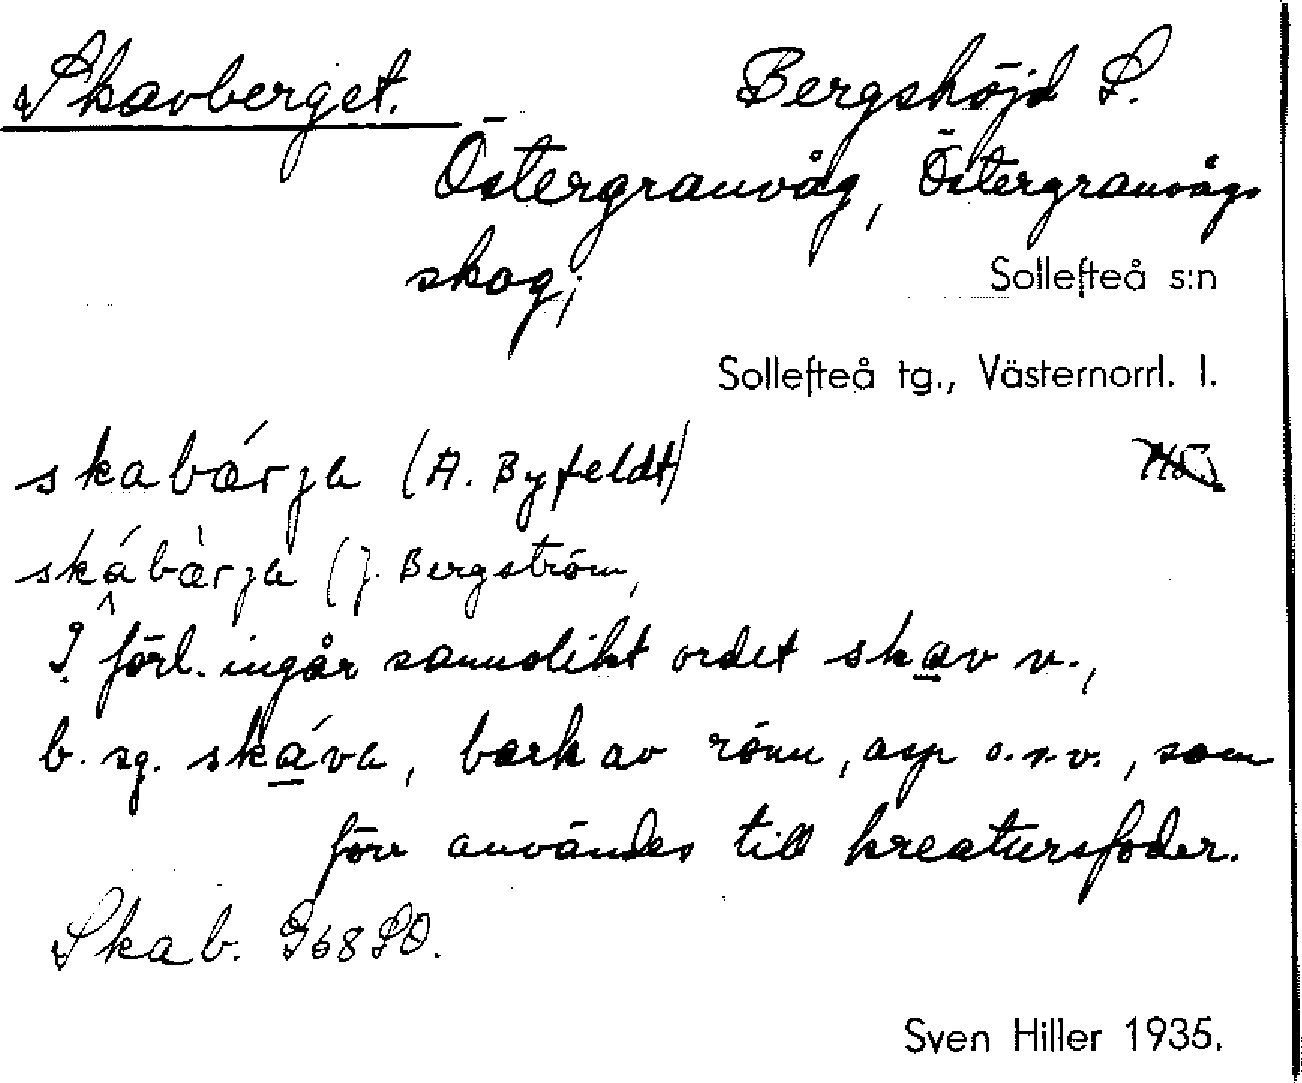 Skavberget. Bergshöjd S.
Östergranvåg, Östergranvågs
skog;
Sollefteå s:n
Sollefteå tg., Västernorrl. l.
skabá̈rja (A. Byfeldt)
skábà̈rja (J. Bergström,
I förl. ingår sannolikt ordet skav n.,
b. sg. skáva, bark av rönn, asp o.s.v., som
förr användes till kreatursfoder.
Skab. J68 SO.
Sven Hiller 1935.